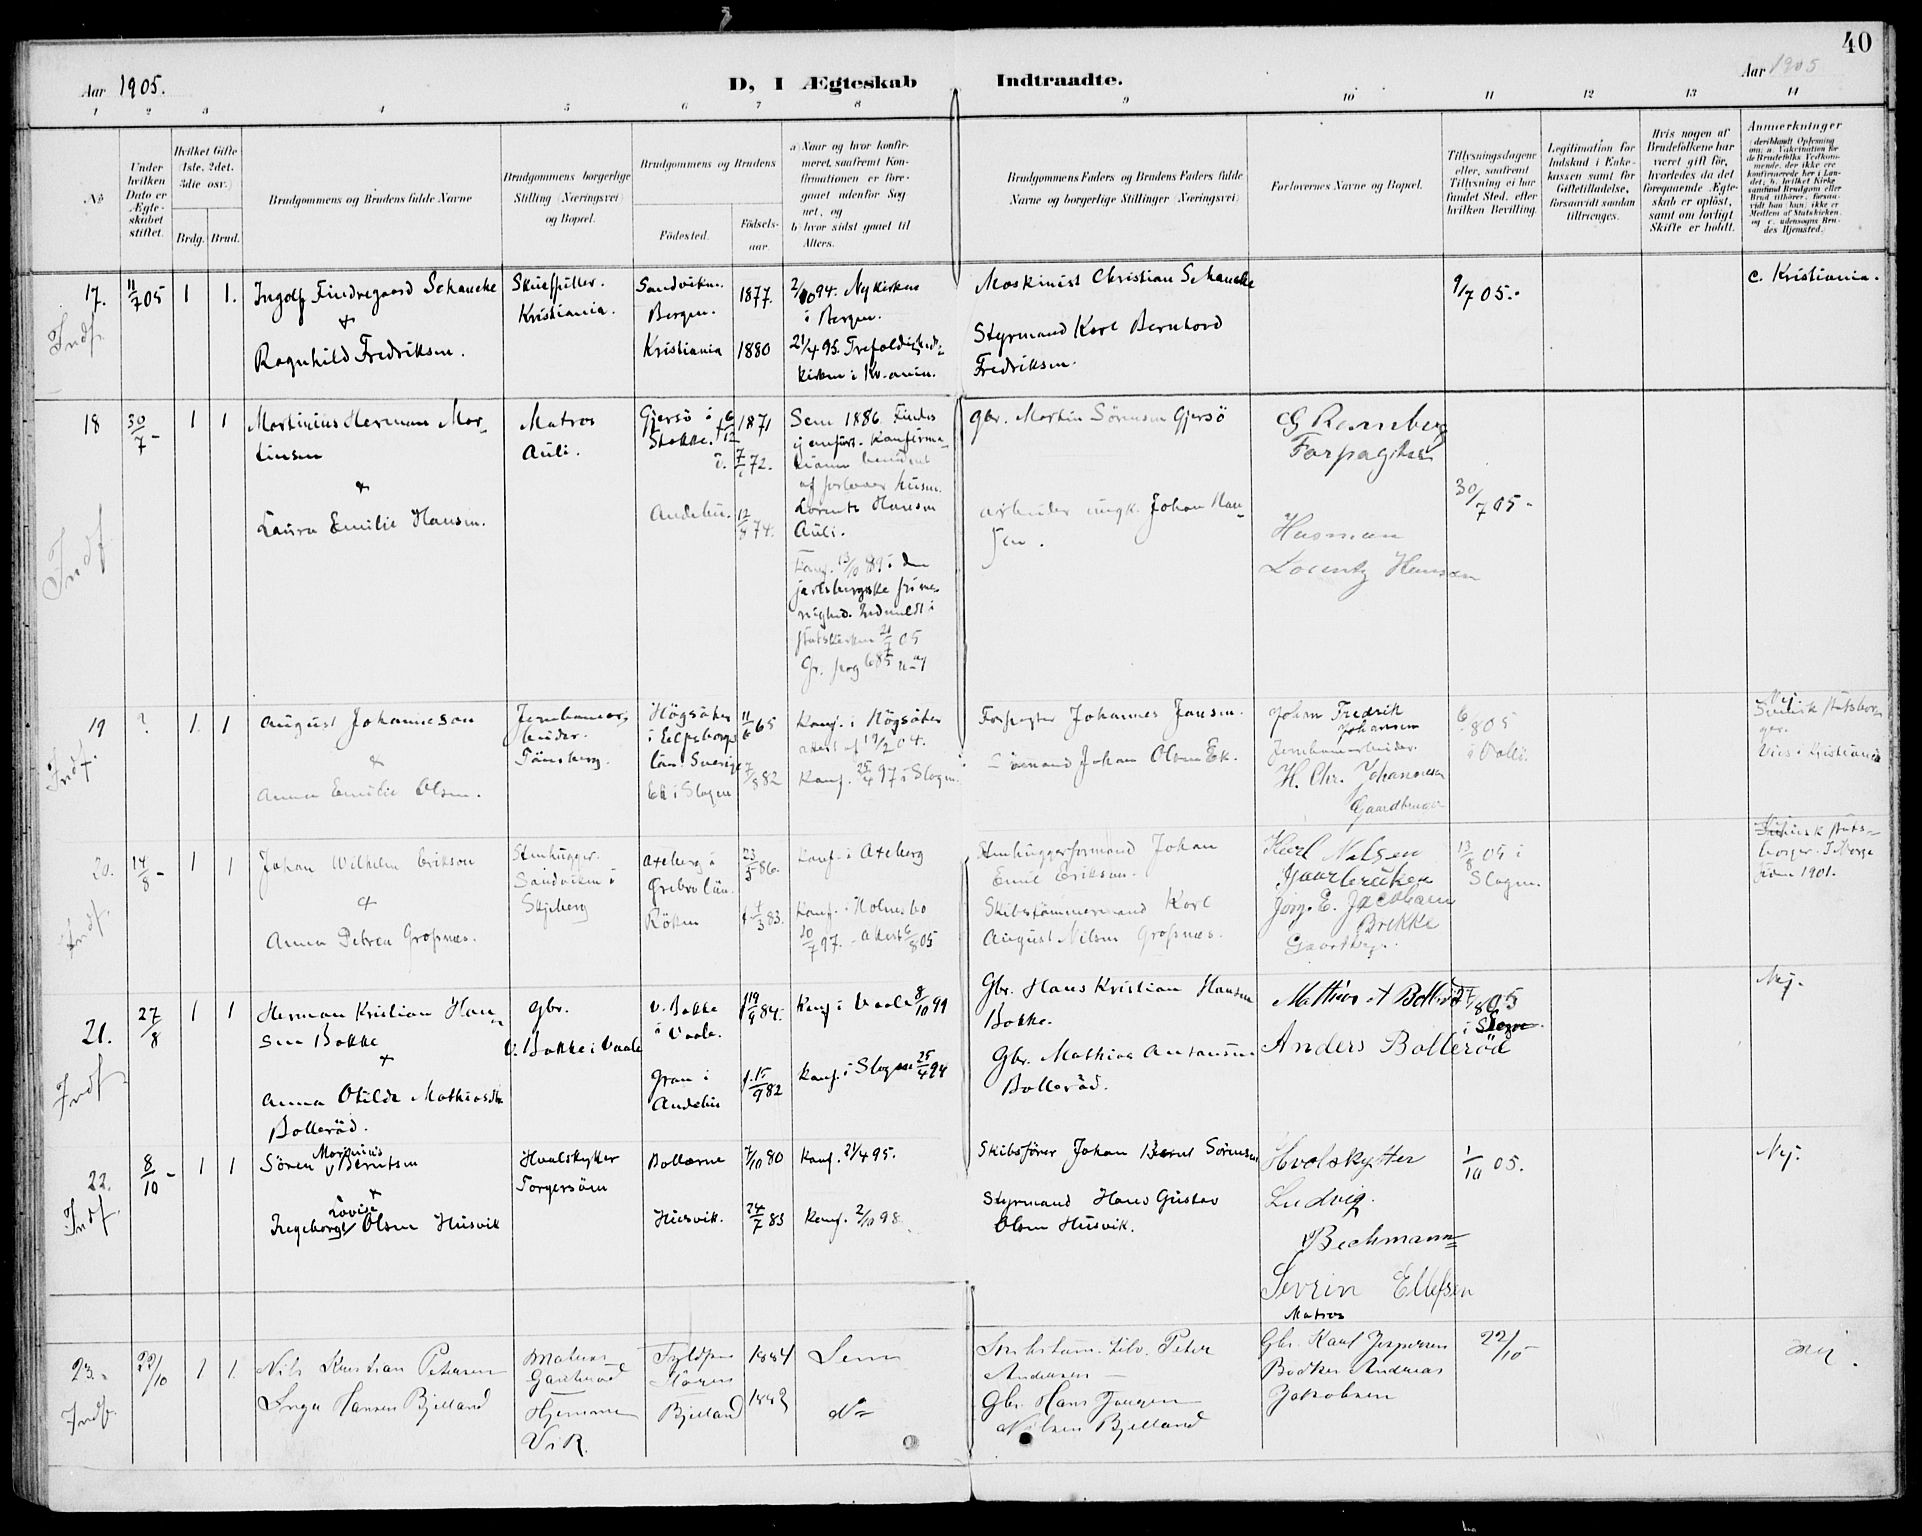 40
Aar 1905.
D, I Ægteskab Indtraadte.
Aar 1905
1 2 3 4 5 6 7 8 9 10 11 12 13 14
No
Under hvilken Dato er Ægteskabet stiftet.
Hvilket Gifte (1ste, 2det, 3die osv.)
Brdg. Brud.
Brudgommens og Brudens fulde Navne
Brudgommens borgerlige Stilling (Næringsvei) og Bopæl.
Brudgommens og Brudens
Fødested.
Fødselsaar.
a) Naar og hvor konfirmeret, saafremt Konfirmationen er foregaaet udenfor Sognet, og
b) hvor sidst gaaet til Alters.
Brudgommens Faders og Brudens Faders fulde Navne og borgerlige Stillinger (Næringsvei)
Forlovernes Navne og Bopæl.
Tillysningsdagene eller, saafremt Tillysning ei har fundet Sted, efter hvilken Bevilling.
Legitimation for Indskud i Enkekassen samt for Giftetilladelse, forsaavidt saadan tiltrænges.
Hvis nogen af Brudefolkene har været gift før, hvorledes da det foregaaende Ægteskab er opløst, samt om lovligt Skifte er holdt.
Anmerkninger
17. 11/7 05 1 1.
Indf.
Ingolf Findregaard Schancke
+
Ragnhild Fredriksen.
Skuespiller.
Kristiania.
Sandviken.
Bergen.
Kristiania
1877.
1880
2/10 94. Nykirken
i Bergen.
21/4 95. Trefoldigheds-
kirken i Kr.ania.
Maskinist Christian Schancke
Styrmand Karl Bernhard
Fredriksen.
9/7 05.
c. Kristiania.
18 30/7- 1 1
Indf
Martinius Herman Mar-
tinsen
+
Laura Emilie Hansen.
Matros
Auli.
Gjersø i
Stokke.
1871
72.
Andebu.
74.
Sem 1886. Findes
ej indført. Konfirma-
af forlover husm.
Lorents Hansen
Auli.
jarlsbergske frime-
nighed. Indmeldt i
statskirken 21/7 05
Gbr. Martin Sørensen Gjersø
arbeider ungk. Johan Han-
sen.
G Ramberg
Forpagter
Husman
Lorentz Hansen
30/7 05-
19 ? 1. 1
Indf.
August Johanneson
&
Anna Emilie Olsen.
Jernbanear-
beider.
Tönsberg.
Högsäter
i Elfsborgs
län. Sverige
Ek i Slagen
11/6 65
7/8 82
Konf. i Högsäter
attest af 19/2 04.
Konf. 25/4 97 i Slagen.
Forpagter Johannes Jansen.
Sömand Johan Olsen Ek.
Johan Fredrik
Johansen
Jernbanearbeider.
H. Chr. Johannesen
Gaardbruger
6/8 05
Nej.
Svensk statsbor-
ger.
Vies i Kristiania
20. 14/8- 1 1
Indf.
Johan Wilhelm Erikson
+
Anna Petrea Grofsnæs.
Stenhugger.
Sandviken i
Skjeberg
Axberg i
Örebro län.
Röken
23/5 86.
f. 1/3 83.
Konf. i Axberg
Konf. i Holmsbo
20/7 97. - attest 6/8 05
Stenhuggerformand Johan
Emil Erikson.
Skibstømmermand Karl
August Nilsen Grofsnæs.
Karl Nilsen
Gaarbruker
Jørg. E. Jacobsen
Brekke
Gaardbr.
13/8 05 i
Slagen.
Svensk stats-
borger. I Norge
siden 1901.
21. 27/8 1 1
Indf
Herman Kristian Han-
sen Bakke
+
Anna Otilde Mathiasdtr.
Bollerød.
Gbr.
V. Bakke i Vaale
V. Bakke
i Vaale.
Gran i
Andebu
f 19/9 84.
f. 15/9 82
Konf. i Vaale 8/10 99
Konf. i Slagen 25/4 94
Gbr. Hans Kristian Hansen
Bakke.
Gbr. Mathias Antonsen
Bollerød.
Mathias A Bollerød
Anders Bollerød
27/8 05
i Slagen.
Nej.
22. 8/10- 1 1
Indf.
Marinius
Søren Berntsen
+
Lovise
Ingeborg Olsen Husvik
Hvalskytter
Torgersöen
Bollærne
Husvik.
7/10 80
24/7 83
Konf. 21/4 95.
Konf. 2/10 98
Skibsfører Johan Bernt Sørensen
Styrmand Hans Gustav
Olsen Husvik.
Hvalskytter
Ludvig
Bechmann
Sevrin Ellefsen
Matros
1/10 05.
Nej.
23. 22/10 1 1.
Indf.
Nils Kristian Petersen
Inga Hansen Bjelland
Matros
Hjemme
Vik.
Bjelland
1884
1883
Sem
do
Peter
Andersen
Gbr. Hans Jørgen
Nilsen Bjelland
Gbr. Karl Jespersen
Bødker Andreas
Jakobsen
22/10
nej.